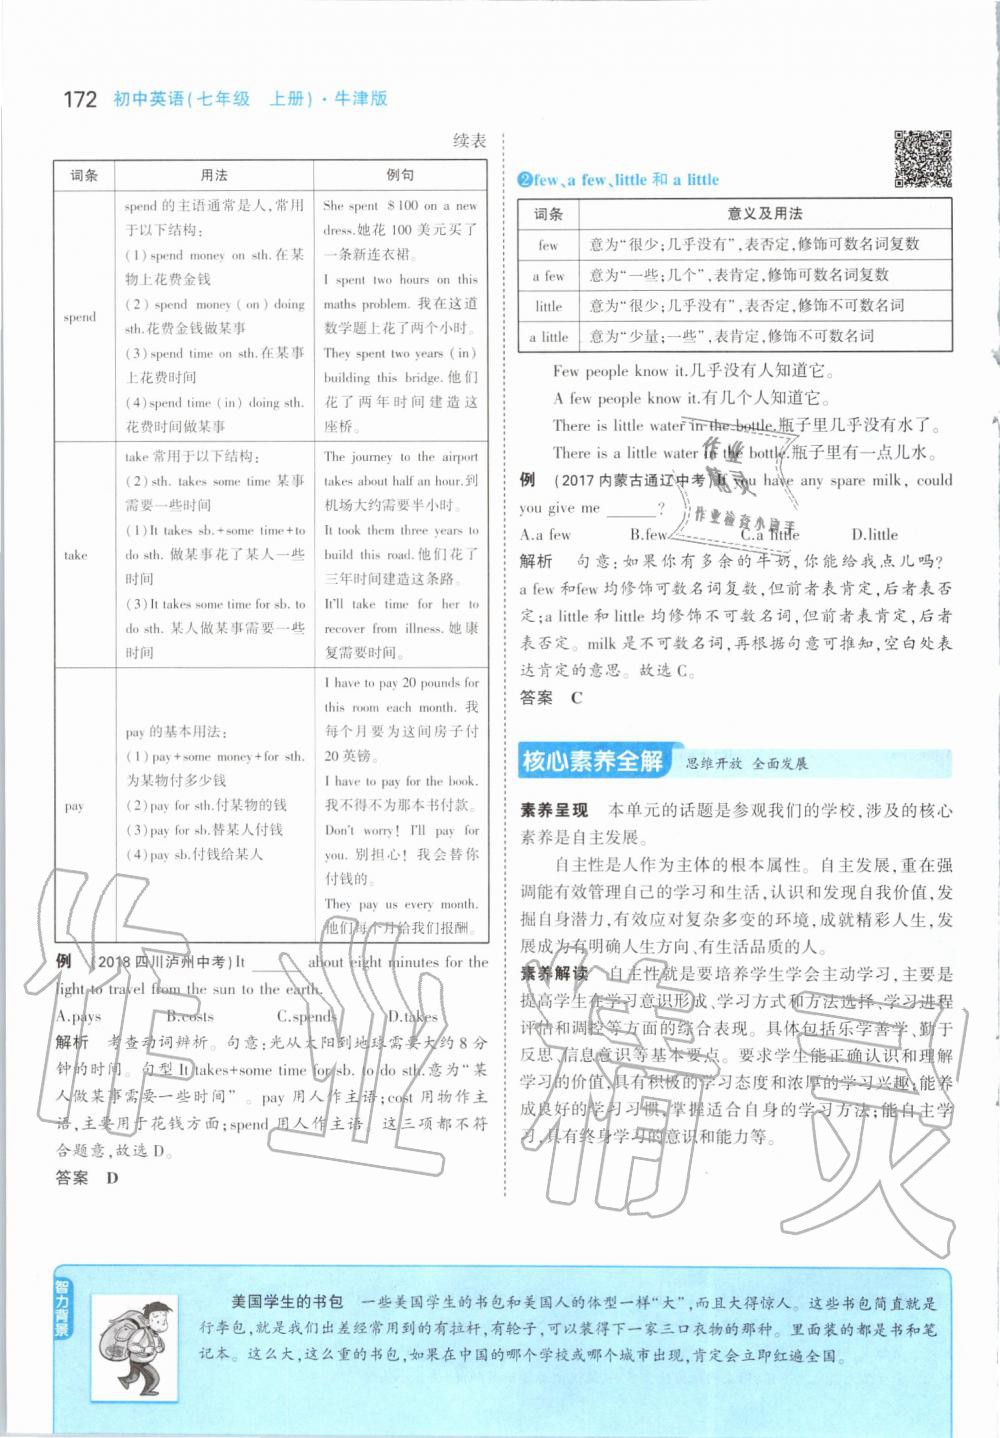 172 初中英语(七年级 上册)·牛津版
续表
词条 用法 例句
spend
spend 的主语通常是人,常用
于以下结构:
(1)spend money on sth.在某
物上花费金钱
(2) spend money (on) doing
sth.花费金钱做某事
(3)spend time on sth.在某事
上花费时间
(4)spend time (in) doing sth.
花费时间做某事
She spent $100 on a new
dress.她花 100 美元买了
一条新连衣裙。
I spent two hours on this
maths problem. 我在这道
数学题上花了两个小时。
They spent two years (in)
building this bridge.他们
花了两年时间建造这
座桥。
take
take 常用于以下结构:
(2) sth. takes some time 某事
需要一些时间
(1)It takes sb.+some time+to
do sth. 做某事花了某人一些
时间
(3)It takes some time for sb. to
do sth. 某人做某事需要一些
时间
The journey to the airport
takes about half an hour.到
机场大约需要半小时。
It took them three years to
build this road.他们花了
三年时间建造这条路。
It'll take time for her to
recover from illness.她康
复需要时间。
pay
pay 的基本用法:
(1)pay+some money+for sth.
为某物付多少钱
(2)pay for sth.付某物的钱
(3)pay for sb.替某人付钱
(4)pay sb.付钱给某人
I have to pay 20 pounds for
this room each month. 我
每个月要为这间房子付
20英镑。
I have to pay for the book.
我不得不为那本书付款。
Don't worry! I'll pay for
you. 别担心! 我会替你
付钱的。
They pay us every month.
他们每个月给我们报酬。
例 (2018 四川泸州中考)It ____ about eight minutes for the
light to travel from the sun to the earth.
A.pays B.costs C.spends D.takes
解析 考查动词辨析。句意:光从太阳到地球需要大约 8 分
钟的时间。句型 It takes+some time for sb. to do sth.意为“某
人做某事需要一些时间”。pay 用人作主语;cost 用物作主
语,主要用于花钱方面;spend 用人作主语。这三项都不符
合题意,故选 D。
答案 D
❷few、a few、little 和 a little
词条 意义及用法
few 意为“很少;几乎没有”,表否定,修饰可数名词复数
a few 意为“一些;几个”,表肯定,修饰可数名词复数
little 意为“很少;几乎没有”,表否定,修饰不可数名词
a little 意为“少量;一些”,表肯定,修饰不可数名词
Few people know it.几乎没有人知道它。
A few people know it.有几个人知道它。
There is little water in the bottle.瓶子里几乎没有水了。
There is a little water in the bottle.瓶子里有一点儿水。
例 (2017 内蒙古通辽中考)If you have any spare milk, could
you give me ____?
A.a few B.few C.a little D.little
解析 句意:如果你有多余的牛奶,你能给我点儿吗?
a few 和few 均修饰可数名词复数,但前者表肯定,后者表否
定;a little 和 little 均修饰不可数名词,但前者表肯定,后者
表否定。milk 是不可数名词,再根据句意可推知,空白处表
达肯定的意思。故选 C。
答案 C
核心素养全解 思维开放 全面发展
素养呈现 本单元的话题是参观我们的学校,涉及的核心
素养是自主发展。
自主性是人作为主体的根本属性。自主发展,重在强
调能有效管理自己的学习和生活,认识和发现自我价值,发
掘自身潜力,有效应对复杂多变的环境,成就精彩人生,发
展成为有明确人生方向、有生活品质的人。
素养解读 自主性就是要培养学生学会主动学习,主要是
提高学生在学习意识形成、学习方式和方法选择、学习进程
评估和调控等方面的综合表现。具体包括乐学善学、勤于
反思、信息意识等基本要点。要求学生能正确认识和理解
学习的价值,具有积极的学习态度和浓厚的学习兴趣;能养
成良好的学习习惯,掌握适合自身的学习方法;能自主学
习,具有终身学习的意识和能力等。
作业
精灵
作业检查小助手
作业精灵
智力背景
美国学生的书包 一些美国学生的书包和美国人的体型一样“大”,而且大得惊人。这些书包简直就是
行李包,就是我们出差经常用到的有拉杆,有轮子,可以装得下一家三口衣物的那种。里面装的都是书和笔
记本。这么大,这么重的书包,如果在中国的哪个学校或哪个城市出现,肯定会立即红遍全国。